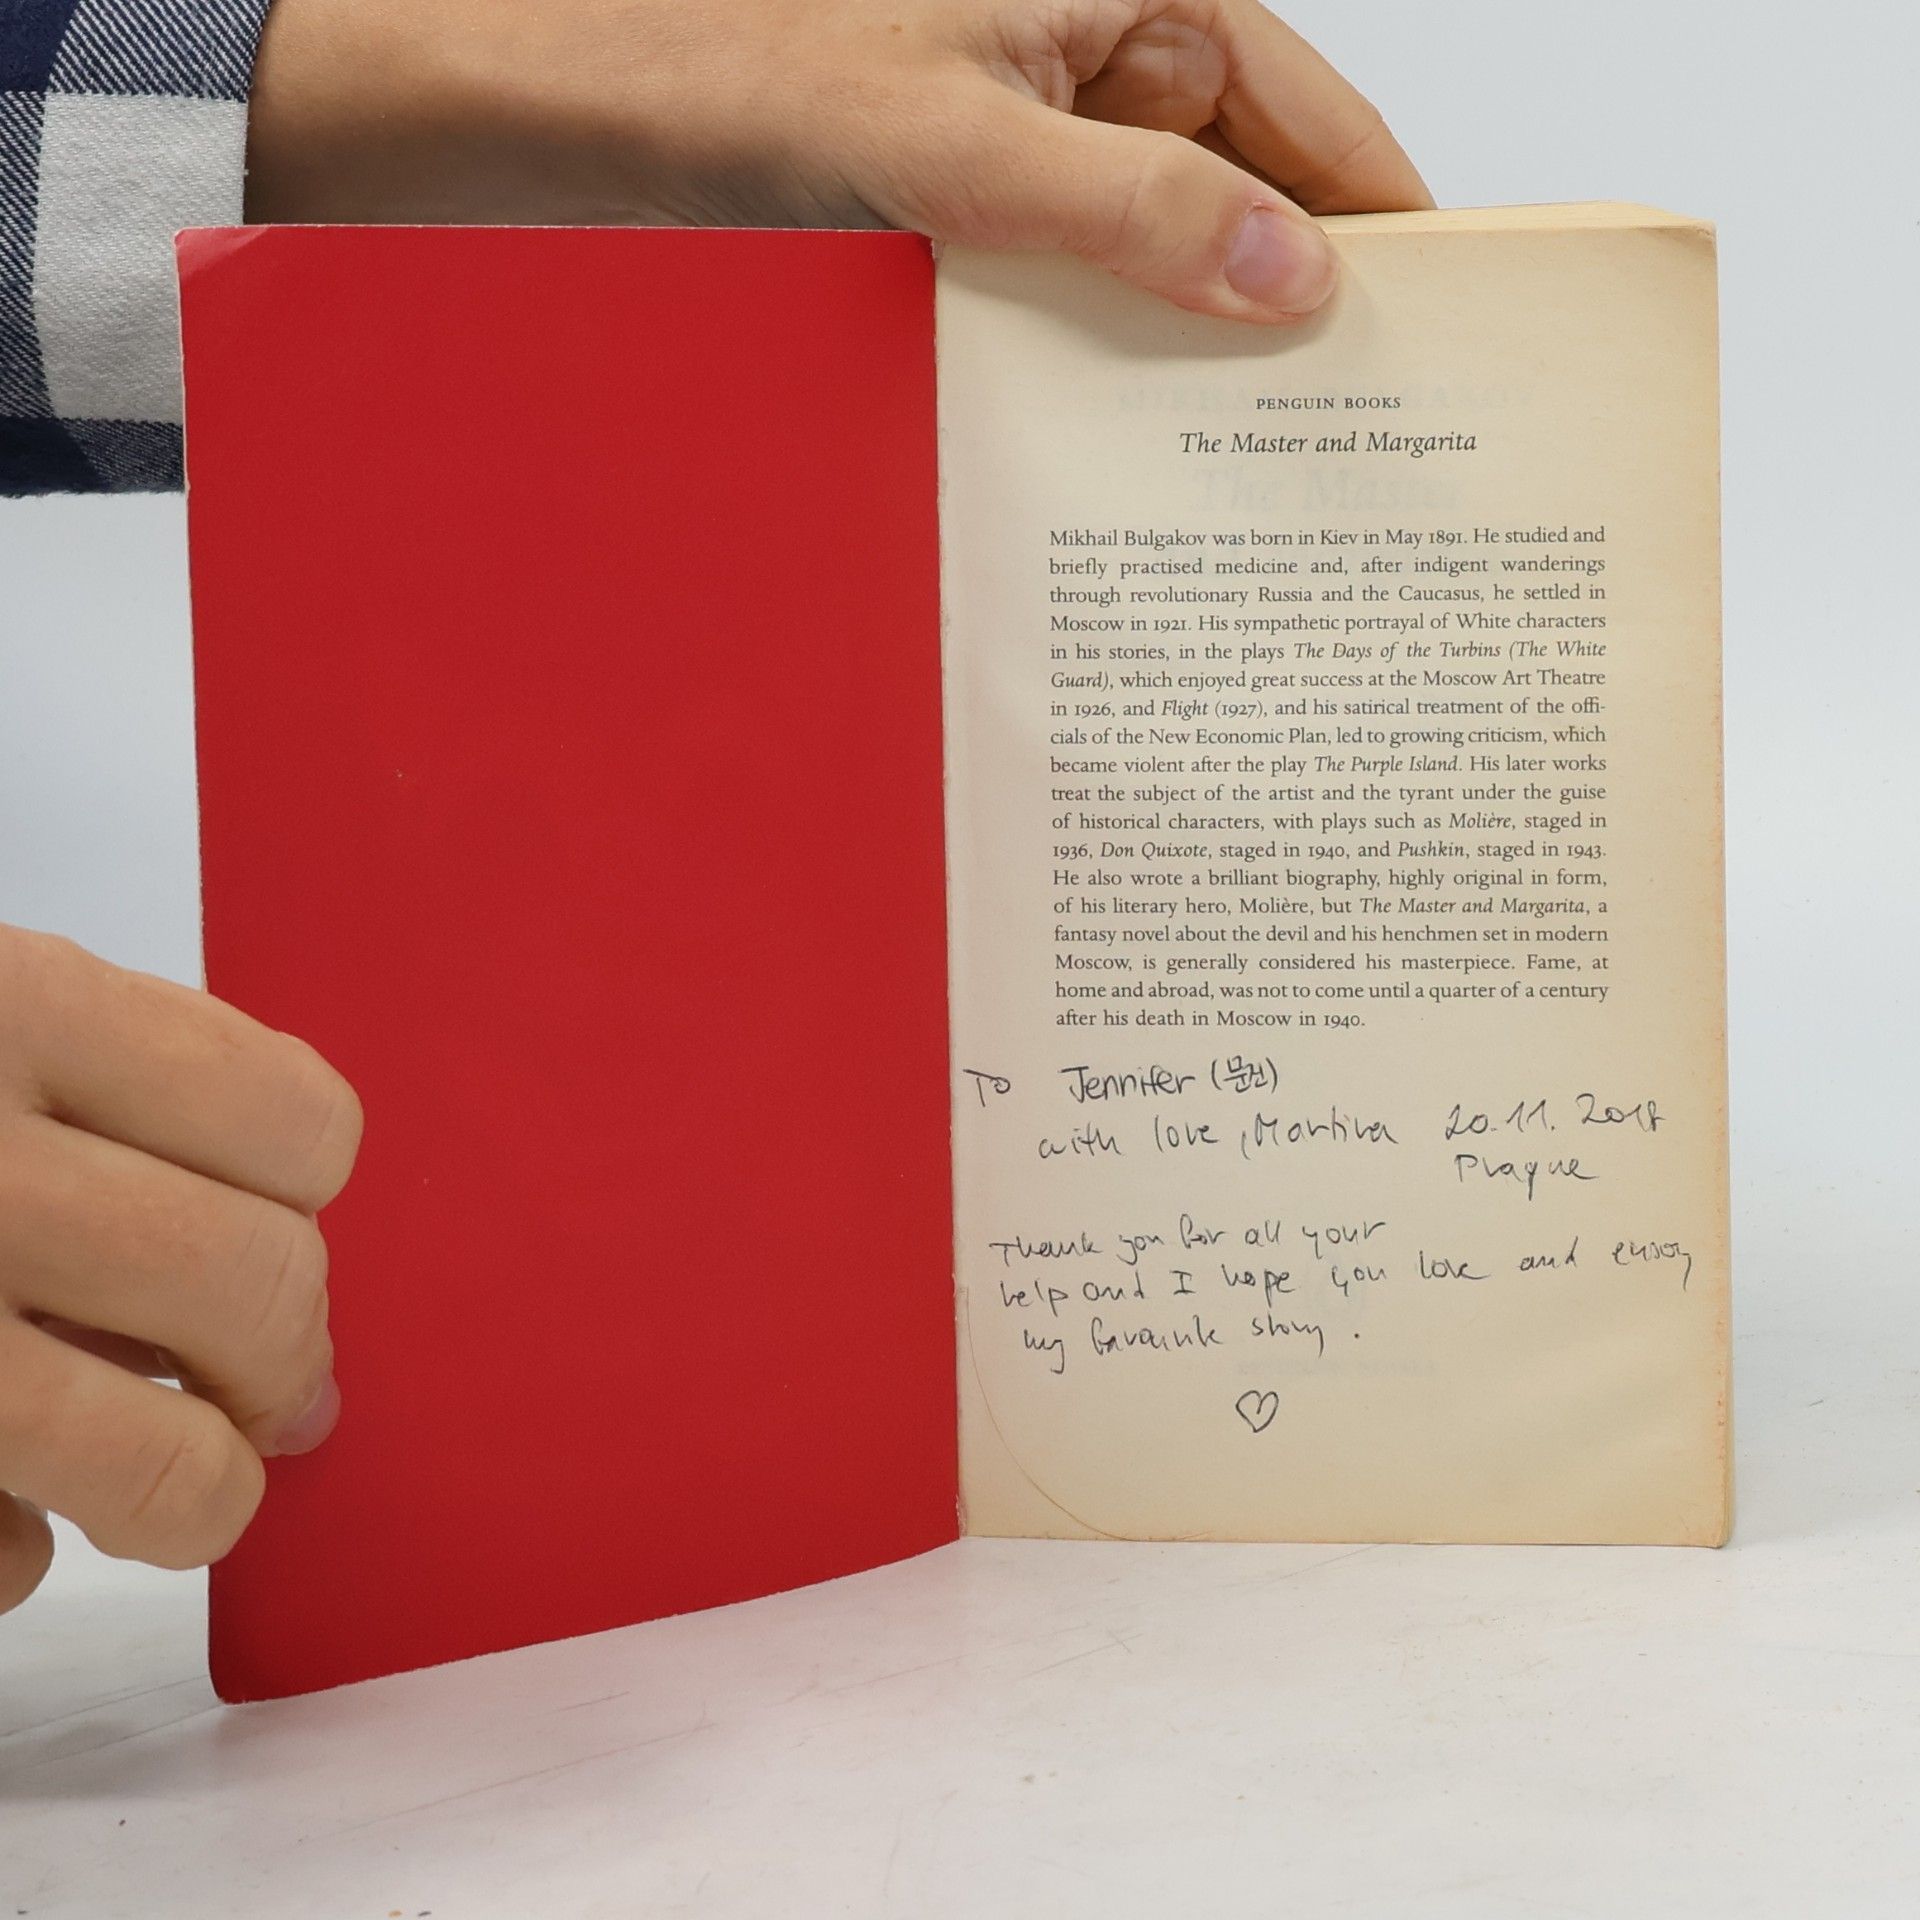 PENGUIN BOOKS
The Master and Margarita
Mikhail Bulgakov was born in Kiev in May 1891. He studied and
briefly practised medicine and, after indigent wanderings
through revolutionary Russia and the Caucasus, he settled in
Moscow in 1921. His sympathetic portrayal of White characters
in his stories, in the plays The Days of the Turbins (The White
Guard), which enjoyed great success at the Moscow Art Theatre
in 1926, and Flight (1927), and his satirical treatment of the offi-
cials of the New Economic Plan, led to growing criticism, which
became violent after the play The Purple Island. His later works
treat the subject of the artist and the tyrant under the guise
of historical characters, with plays such as Molière, staged in
1936, Don Quixote, staged in 1940, and Pushkin, staged in 1943.
He also wrote a brilliant biography, highly original in form,
of his literary hero, Molière, but The Master and Margarita, a
fantasy novel about the devil and his henchmen set in modern
Moscow, is generally considered his masterpiece. Fame, at
home and abroad, was not to come until a quarter of a century
after his death in Moscow in 1940.
To Jennifer (문건)
with love, Martina 20.11.
Prague
Thank you for all your
help and I hope you love and enjoy
my favourite story.